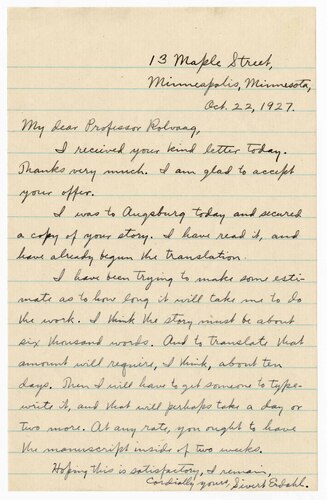 13 Maple Street,
Minneapolis, Minnesota,
Oct. 22, 1927.
My dear Professor Rolvaag,
I received your kind letter today.
Thanks very much. I am glad to accept
your offer.
I was to Augsburg today and secured
a copy of your story. I have read it, and
have already begun the translation.
I have been trying to make some esti-
mate as to how long it will take me to do
the work. I think the story must be about
six thousand words. And to translate that
amount will require, I think, about ten
days. Then I will have to get someone to type-
write it, and that will perhaps take a day or
two more. At any rate, you ought to have
the manuscript inside of two weeks.
Hoping this is satisfactory, I remain,
Cordially yours, Sivert Erdahl.